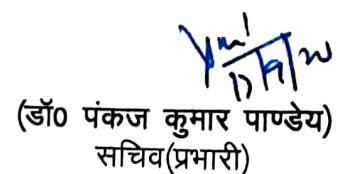 (डॉ0 पंकज कुमार पाण्डेय)
सचिव(प्रभारी)